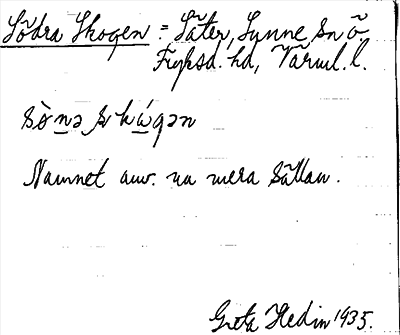 Södra Skogen = Säter, Sunne sn ö.
Fryksd. hd, Värml. l.
sò̱nə skɯ́gən
Namnet anv. nu mera sällan.
Greta Hedin 1935.